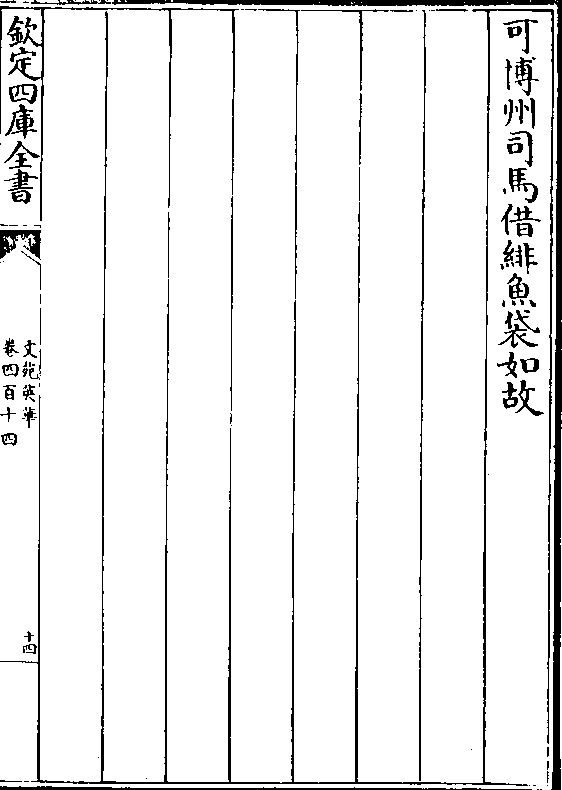 可博州司馬借緋魚袋如故
欽定四庫全書
文苑英華
卷四百十四
十四